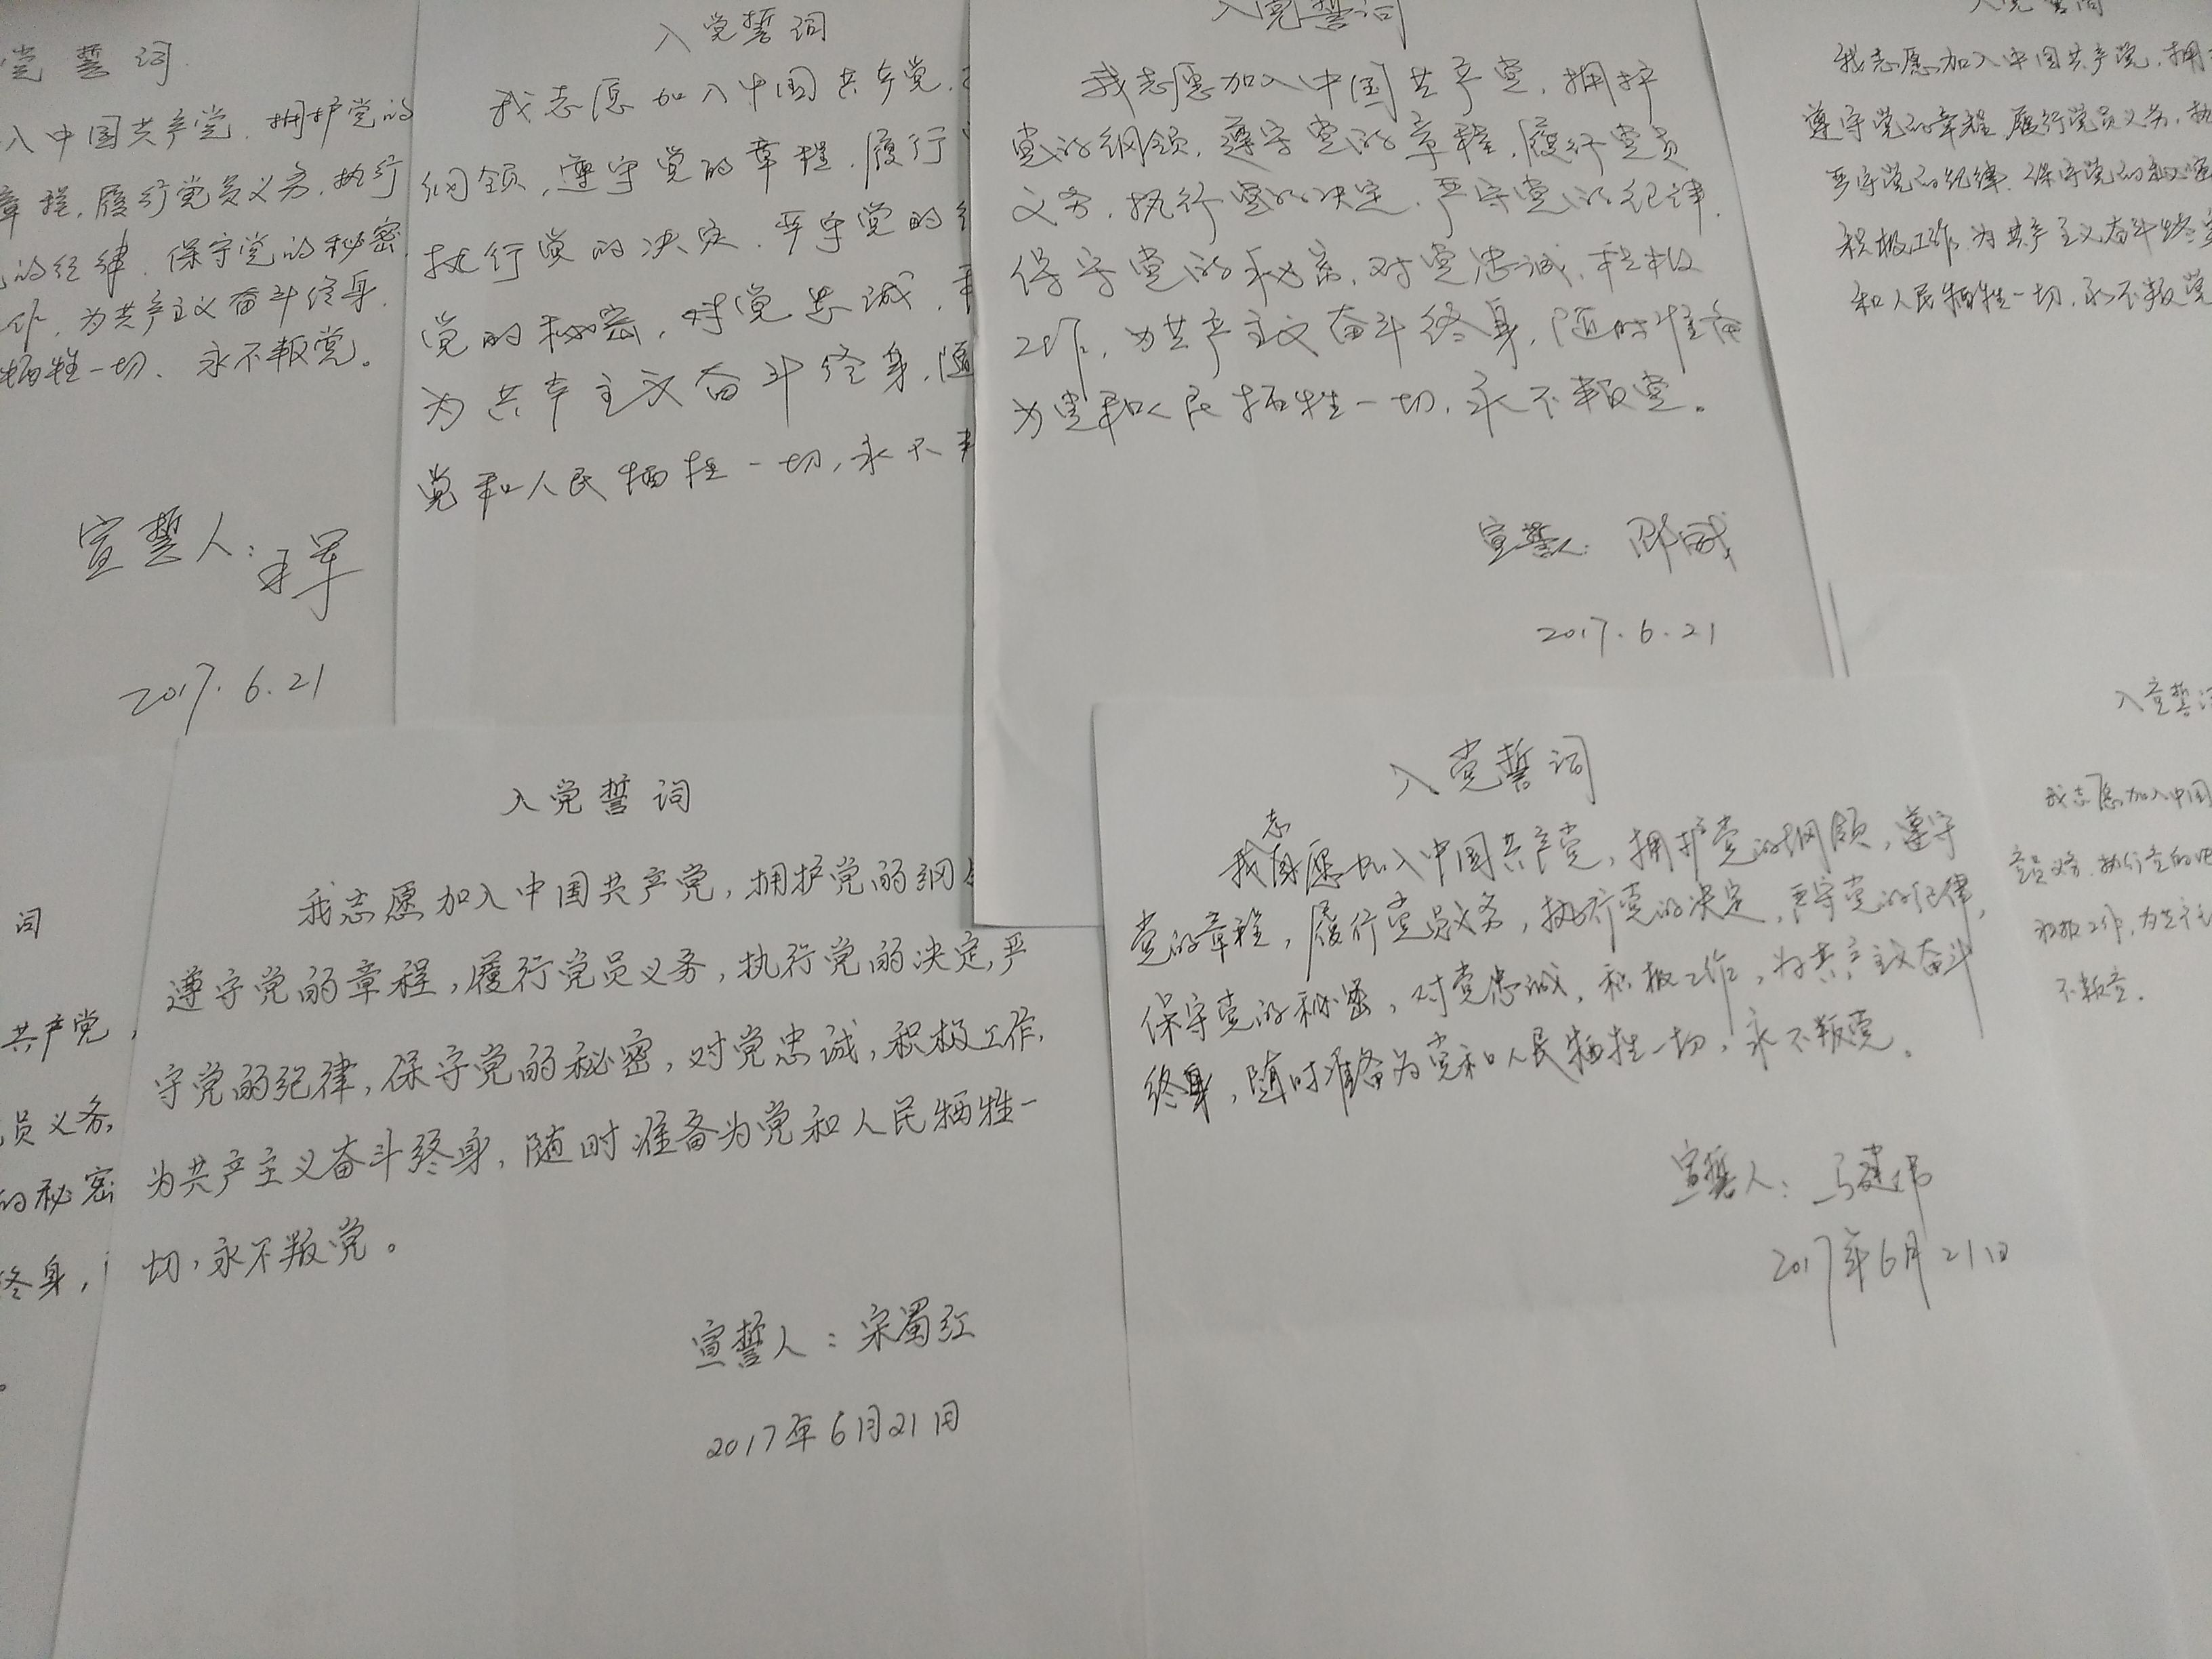 党誓词
入中国共产党.拥护党的
章程.履行党员义务.执行
的纪律.保守党的秘密.
作,为共产主义奋斗终身.
牺牲一切、永不叛党。
宣誓人:
2017.6.21
入党誓词
我志愿加入中国共产党.
纲领,遵守党的章程.履行
执行党的决定.严守党的
党的秘密,对党忠诚,
为共产主义奋斗终身.随
党和人民牺牲一切,永不
入党誓词
我志愿加入中国共产党,拥护
党的纲领,遵守党的章程,履行党员
义务,执行党的决定,严守党的纪律.
保守党的秘密,对党忠诚,积极
工作,为共产主义奋斗终身,随时准备
为党和人民牺牲一切,永不叛党。
宣誓人:
2017.6.21
入党誓词
我志愿加入中国共产党,拥
遵守党的章程,履行党员义务,执
严守党的纪律.保守党的秘密
积极工作,为共产主义奋斗终身
和人民牺牲一切,永不叛党
词
共产党,
员义务,
的秘密
终身,
。
入党誓词
我志愿加入中国共产党,拥护党的纲
遵守党的章程,履行党员义务,执行党的决定,严
守党的纪律,保守党的秘密,对党忠诚,积极工作,
为共产主义奋斗终身,随时准备为党和人民牺牲一
切,永不叛党。
宣誓人:宋蜀红
2017年6月21日
入党誓词
志
我愿加入中国共产党,拥护党的纲领,遵守
党的章程,履行党员义务,执行党的决定,严守党的纪律,
保守党的秘密,对党忠诚,积极工作,为共产主义奋斗
终身,随时准备为党和人民牺牲一切,永不叛党。
宣誓人:马建伟
2017年6月21日
入党誓词
我志愿加入中国
党员义务.执行党的
积极工作,为共产
不叛党.